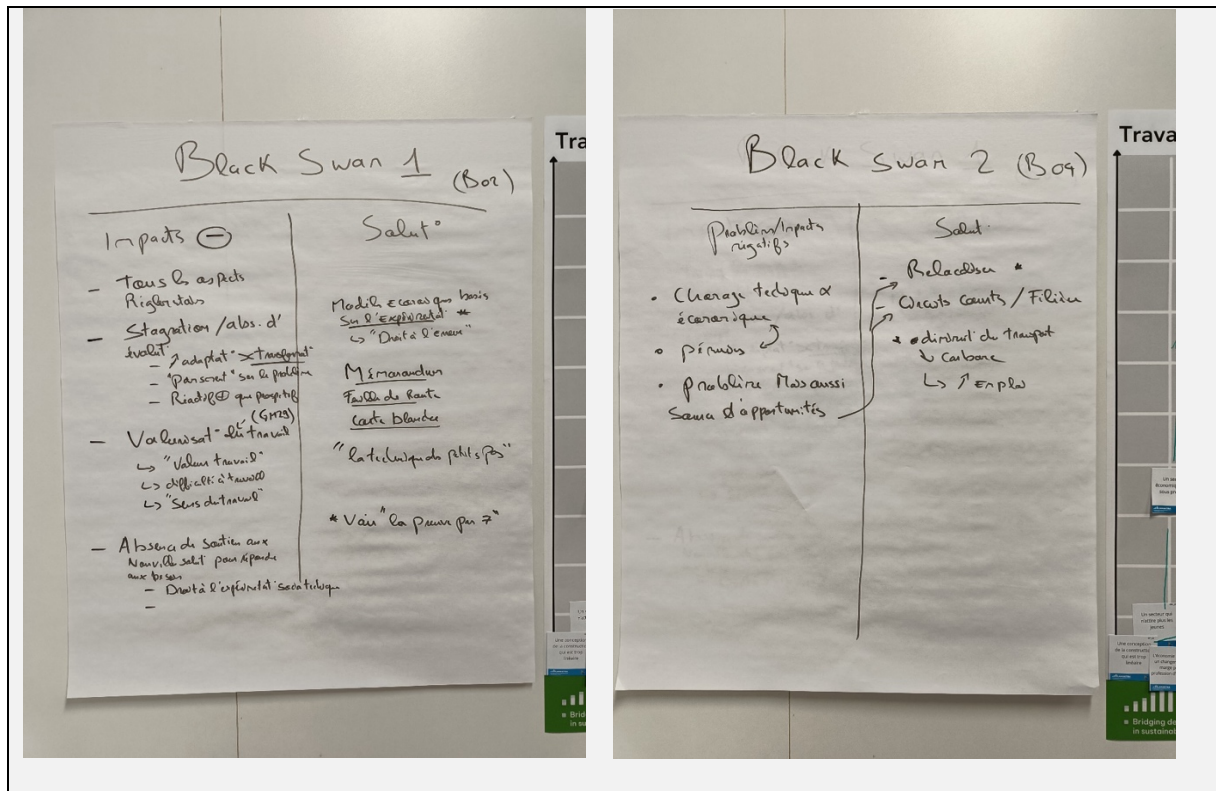 Black Swan 1
(B02)
Impacts ⊖
- Tous les aspects
Réglmtais
- Stagnation / abs. d'
évolut°
- ↗ adaptat° >< transformat°
- "Pansement" sur le problème
- Réactif ⊕ que prospectif
(GM29)
- Valorisat° du travail
↳ "Valeur travail"
↳ difficulté à travail
↳ "Sens du travail"
- Absence de soutien aux
Nouv. solut° pour répondre
aux besoin
- Droit à l'expérimentat° sociotechnique
-
Solut°
Modèle économique basés
sur l'Expérimentat° *
↳ "Droit à l'erreur"
Mémorandum
Feuille de Route
Carte blanche
"la technique des petits pas"
* Voir "la preuve par 7"
Tra
Une conception
de la construction
qui est trop
linéaire
Black Swan 2 (B09)
Problèm/Impacts
négatifs
• Chômage technique &
économique
• pénurie
• problème Mais aussi
Source d'opportunités
Solut°
- Relocaliser *
- Circuits courts / Filière
* diminut° du transport
↓ Carbone
↳ ↗ Emploi
Trava
Un secteur qui
n'attire plus les
jeunes
Une conception
de la construction
qui est trop
linéaire
Bridging de
in sustainab